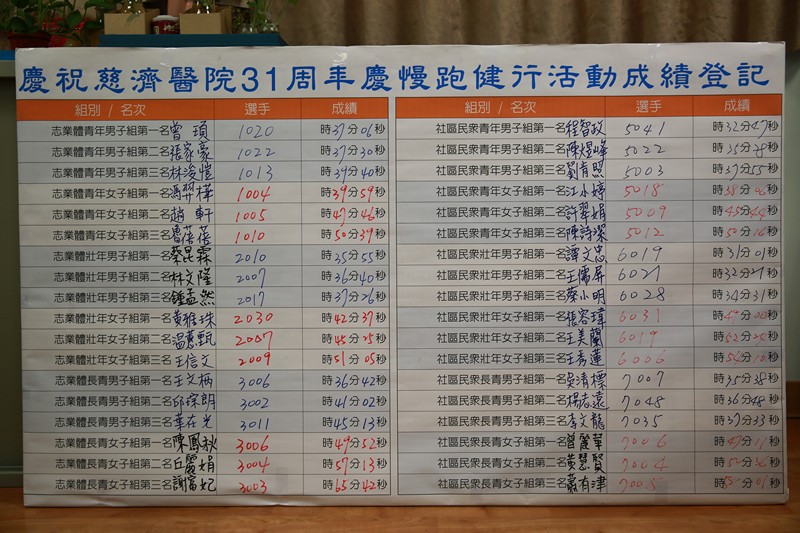 慶祝慈濟醫院31周年慶慢跑健行活動成績登記
組別 / 名次 選手 成績
志業體青年男子組第一名 曾頊 1020 時37分06秒
志業體青年男子組第二名 張家豪 1022 時37分30秒
志業體青年男子組第三名 林浚愷 1013 時39分40秒
志業體青年女子組第一名 馮羿樺 1004 時39分59秒
志業體青年女子組第二名 趙軒 1005 時47分46秒
志業體青年女子組第三名 曾蓓蓓 1010 時50分39秒
志業體壯年男子組第一名 蔡昆霖 2010 時35分55秒
志業體壯年男子組第二名 林文隆 2007 時36分40秒
志業體壯年男子組第三名 鍾孟然 2017 時37分26秒
志業體壯年女子組第一名 黃雅珠 2030 時42分37秒
志業體壯年女子組第二名 溫蕙甄 2007 時45分25秒
志業體壯年女子組第三名 王信文 2009 時51分05秒
志業體長青男子組第一名 王文炳 3006 時36分42秒
志業體長青男子組第二名 邱琮朗 3002 時41分02秒
志業體長青男子組第三名 華在光 3011 時45分13秒
志業體長青女子組第一名 陳鳳秋 3006 時49分52秒
志業體長青女子組第二名 丘麗娟 3004 時57分13秒
志業體長青女子組第三名 謝富妃 3003 時65分42秒
組別 / 名次 選手 成績
社區民衆青年男子組第一名 程智玫 5041 時32分47秒
社區民衆青年男子組第二名 陳煜峰 5022 時35分28秒
社區民衆青年男子組第三名 劉育熙 5003 時37分55秒
社區民衆青年女子組第一名 江小婷 5018 時38分秒
社區民衆青年女子組第二名 許翠娟 5009 時45分44秒
社區民衆青年女子組第三名 陳詩琛 5012 時50分16秒
社區民衆壯年男子組第一名 譚文忠 6019 時31分01秒
社區民衆壯年男子組第二名 王儒屏 6027 時32分27秒
社區民衆壯年男子組第三名 蔡小明 6028 時34分31秒
社區民衆壯年女子組第一名 張容瑋 6031 時49分00秒
社區民衆壯年女子組第二名 王美蘭 6019 時52分秒
社區民衆壯年女子組第三名 王秀蓮 6006 時56分秒
社區民衆長青男子組第一名 吳清標 7007 時35分38秒
社區民衆長青男子組第二名 楊志遠 7048 時36分48秒
社區民衆長青男子組第三名 李文龍 7035 時37分33秒
社區民衆長青女子組第一名 曾麗華 7006 時47分11秒
社區民衆長青女子組第二名 黃慧賢 7004 時分秒
社區民衆長青女子組第三名 蕭有津 時分01秒